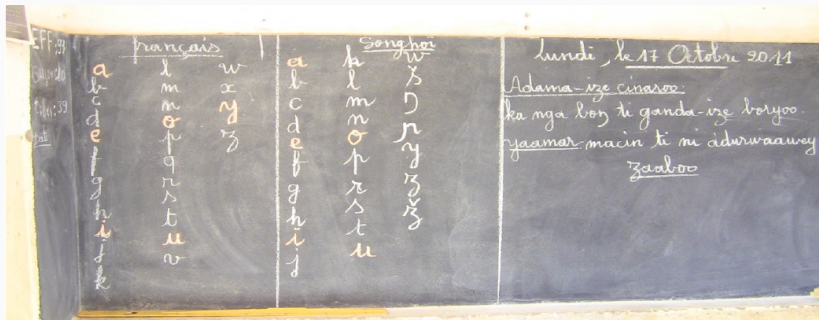 EFF: 93
français
a
b
c
d
e
f
g
h
i
j
k
l
m
n
o
p
q
r
s
t
u
v
w
x
y
z
Songhoï
a
b
c
d
e
f
g
h
i
j
k
l
m
n
o
p
r
s
t
u
w
š
ŋ
ɲ
y
z
ž
Lundi, le 17 Octobre 2011
Adama-ize cinasoo:
ka nga boŋ ti ganda-ize boryoo.
yaamar-macin ti ni adurwaawey
zaaboo